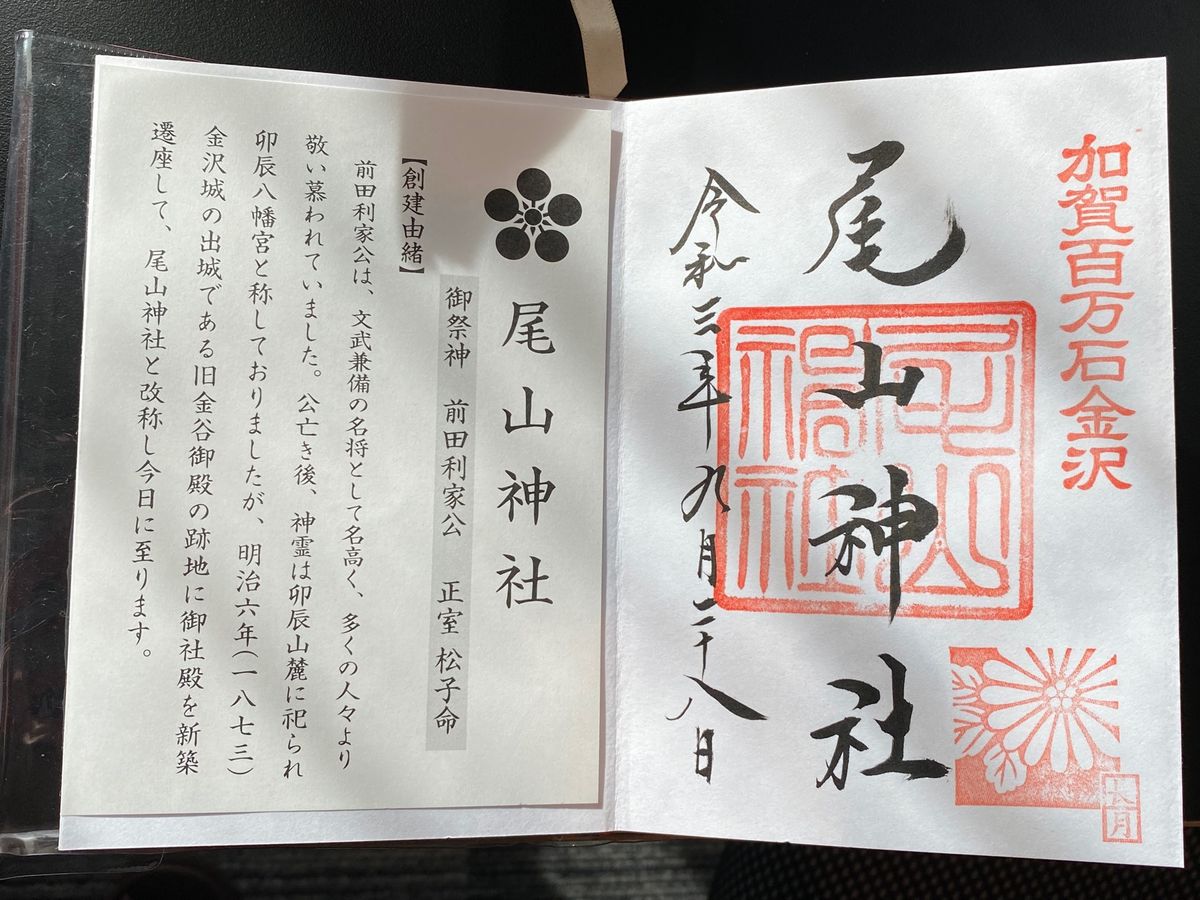 加賀百万石金沢
尾山神社
尾山神社
長月
令和三年九月二十八日
尾山神社
御祭神 前田利家公 正室 松子命
【創建由緒】
前田利家公は、文武兼備の名将として名高く、多くの人々より
敬い慕われていました。公亡き後、神霊は卯辰山麓に祀られ
卯辰八幡宮と称しておりましたが、明治六年(一八七三)
金沢城の出城である旧金谷御殿の跡地に御社殿を新築
遷座して、尾山神社と改称し今日に至ります。